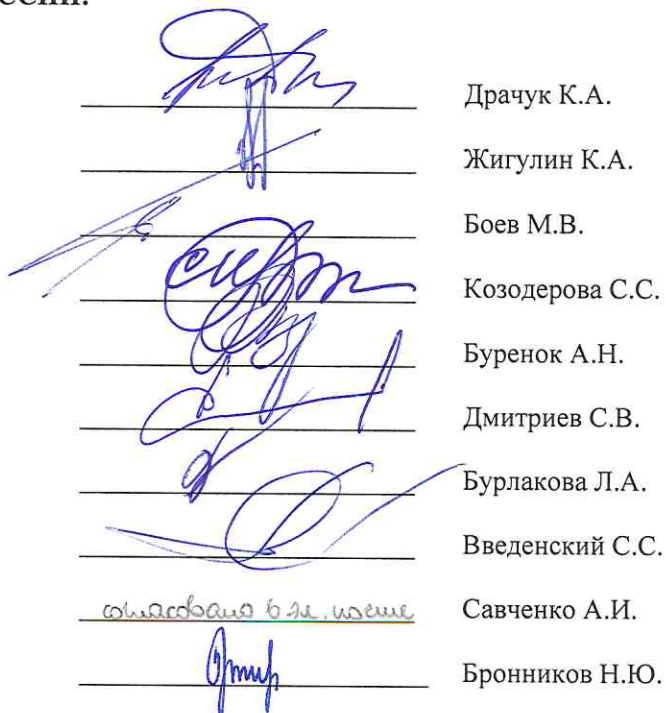 Драчук К.А.
Жигулин К.А.
Боев М.В.
Козодерова С.С.
Буренок А.Н.
Дмитриев С.В.
Бурлакова Л.А.
Введенский С.С.
согласовано в эл. почте Савченко А.И.
Бронников Н.Ю.